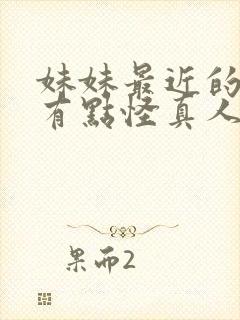 妹妹最近的
有點怪真人
果而2